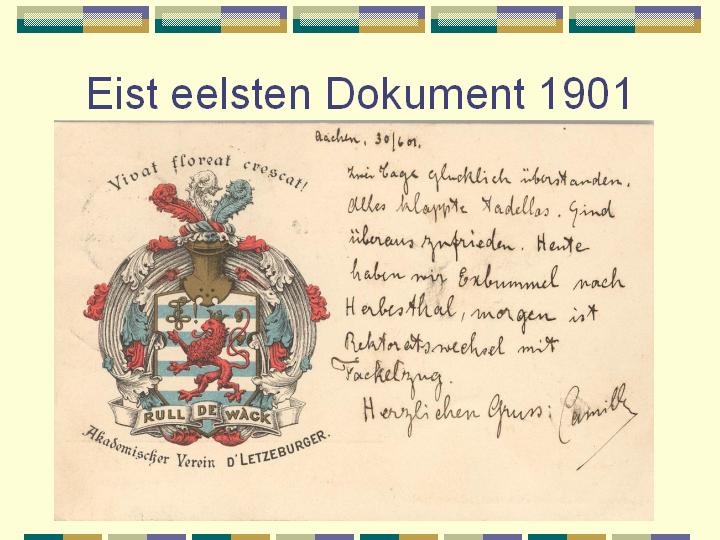 Eist eelsten Dokument 1901
Vivat floreat crescat!
RULL DE WÄCK
Akademischer Verein D'LETZEBURGER.
Aachen, 30/6 01.
Zwei Tage glücklich überstanden.
Alles klappte tadellos. Sind
überaus zufrieden. Heute
haben wir Exbummel nach
Herbesthal, morgen ist
Rektoratswechsel mit
Fackelzug.
Herzlichen Gruss: Camille